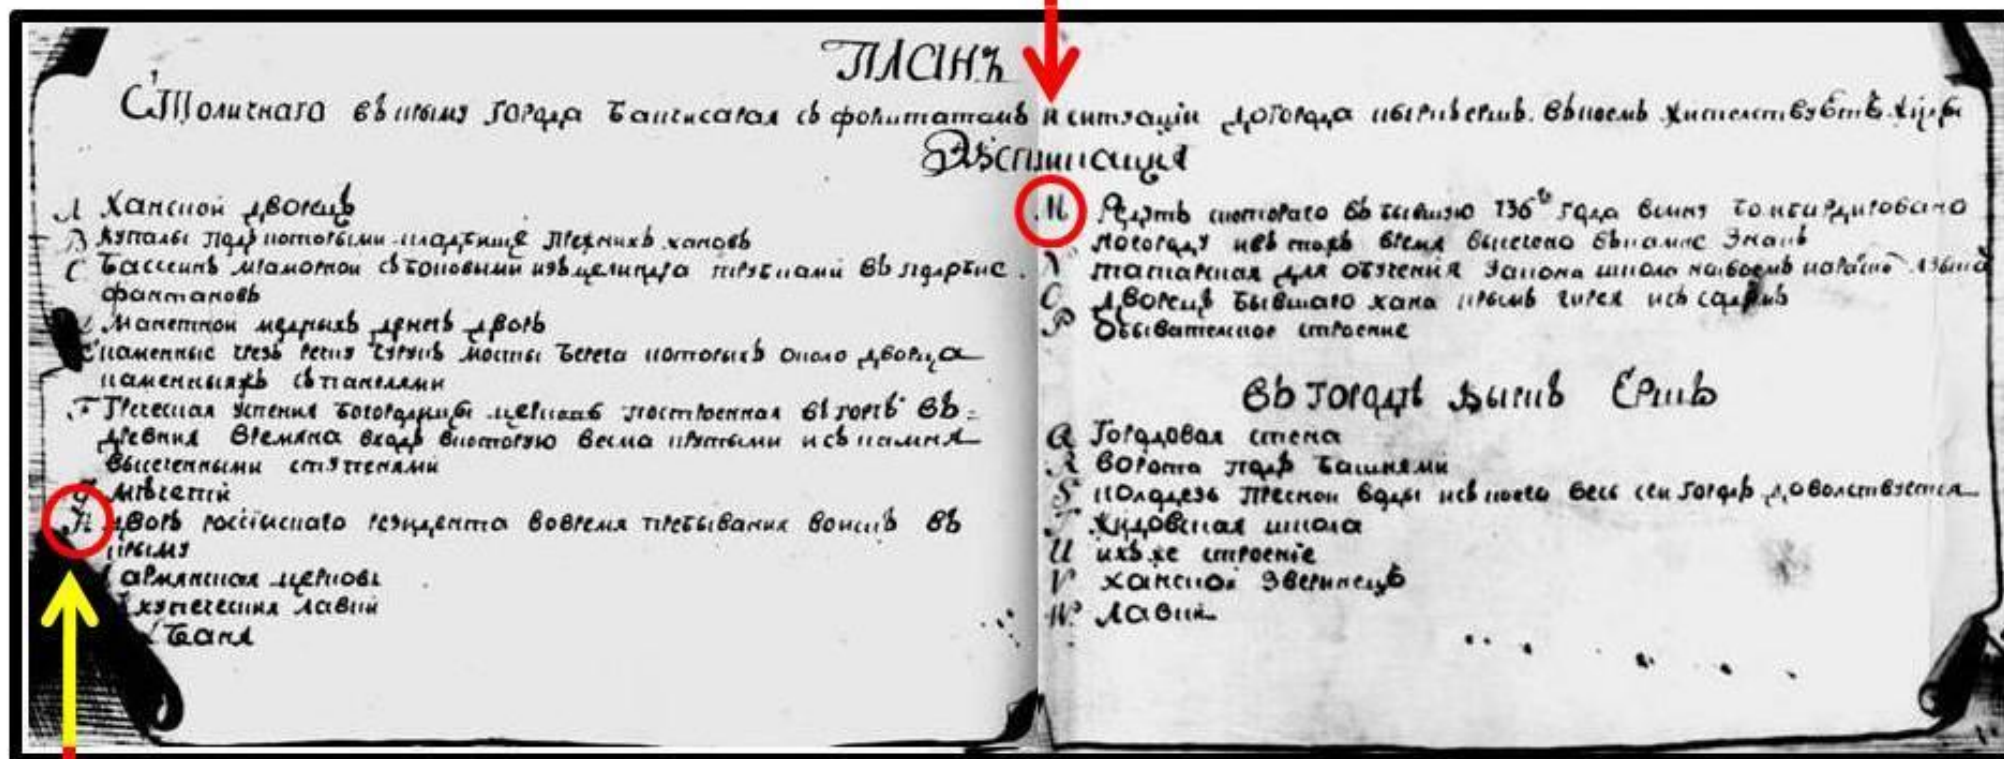 ПЛАНЪ
Столичнаго въ крыму города Бакчисарая съ форштатамъ и ситуаціи до города кыркъеркъ. въ коемъ жителствуетъ
Экспликация
A Ханской дворецъ
B купалы подъ которыми кладбище прежнихъ хановъ
C Бассеинъ мраморной съ боковыми изъ цилиндра трубками въ подобие
фантановъ
Манетной медныхъ денегъ дворъ
E каменные чрезъ речку чурукъ мосты берега которыхъ около дворца
каменныяжъ съ панелями
F Греческая успения богородицы церковь построенная въ горе въ
древния времяна входъ в которую весма крутыми исъ камня
высеченными ступенями
G мѣчети
H дворъ россиискаго резидента вовремя пребывания воискъ въ
крыму
армянская церковь
купеческия лавки
L Баня
M Редутъ скотораго въ бывшую 736го года воину бомбардировано
по городу и въ тожъ время высечено въ камне знакъ
N татарская для обучения закона школа
O дворецъ бывшаго хана крымъ гирея исъ садомъ
P Обывателское строение
въ городе Кыркъ Еркъ
Q Городовая стена
R ворота подъ башнями
S колодезь пресной воды исъ коего весь сеи городъ доволствуется
T жидовская школа
U ихъ же строеніе
V ханской Зверинецъ
W. лавки